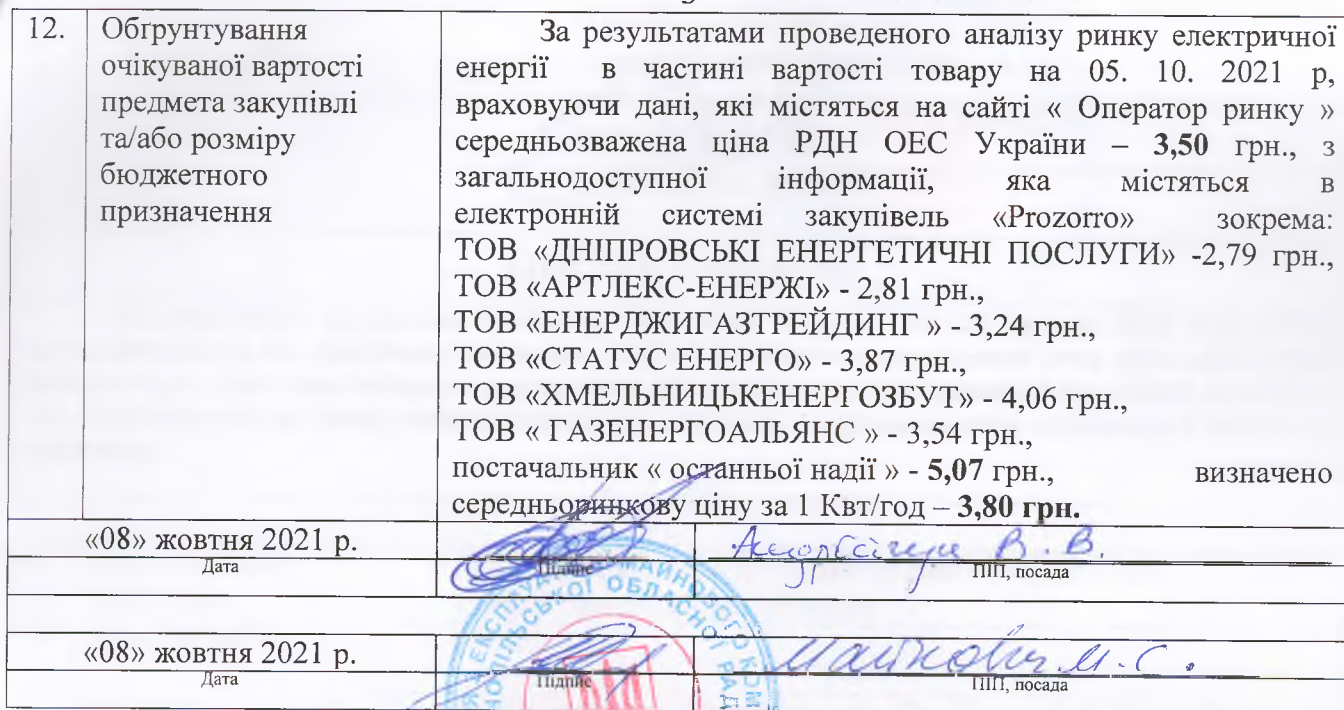 12. Обґрунтування очікуваної вартості предмета закупівлі та/або розміру бюджетного призначення
За результатами проведеного аналізу ринку електричної
енергії в частині вартості товару на 05. 10. 2021 р,
враховуючи дані, які містяться на сайті « Оператор ринку »
середньозважена ціна РДН ОЕС України – 3,50 грн., з
загальнодоступної інформації, яка містяться в
електронній системі закупівель «Prozorro» зокрема:
ТОВ «ДНІПРОВСЬКІ ЕНЕРГЕТИЧНІ ПОСЛУГИ» -2,79 грн.,
ТОВ «АРТЛЕКС-ЕНЕРЖІ» - 2,81 грн.,
ТОВ «ЕНЕРДЖИГАЗТРЕЙДИНГ » - 3,24 грн.,
ТОВ «СТАТУС ЕНЕРГО» - 3,87 грн.,
ТОВ «ХМЕЛЬНИЦЬКЕНЕРГОЗБУТ» - 4,06 грн.,
ТОВ « ГАЗЕНЕРГОАЛЬЯНС » - 3,54 грн.,
постачальник « останньої надії » - 5,07 грн., визначено
середньоринкову ціну за 1 Квт/год – 3,80 грн.
«08» жовтня 2021 р. В. В.
Дата Підпис ПІП, посада
ОБЛАСНОЇ
«08» жовтня 2021 р. М. С.
Дата Підпис ПІП, посада